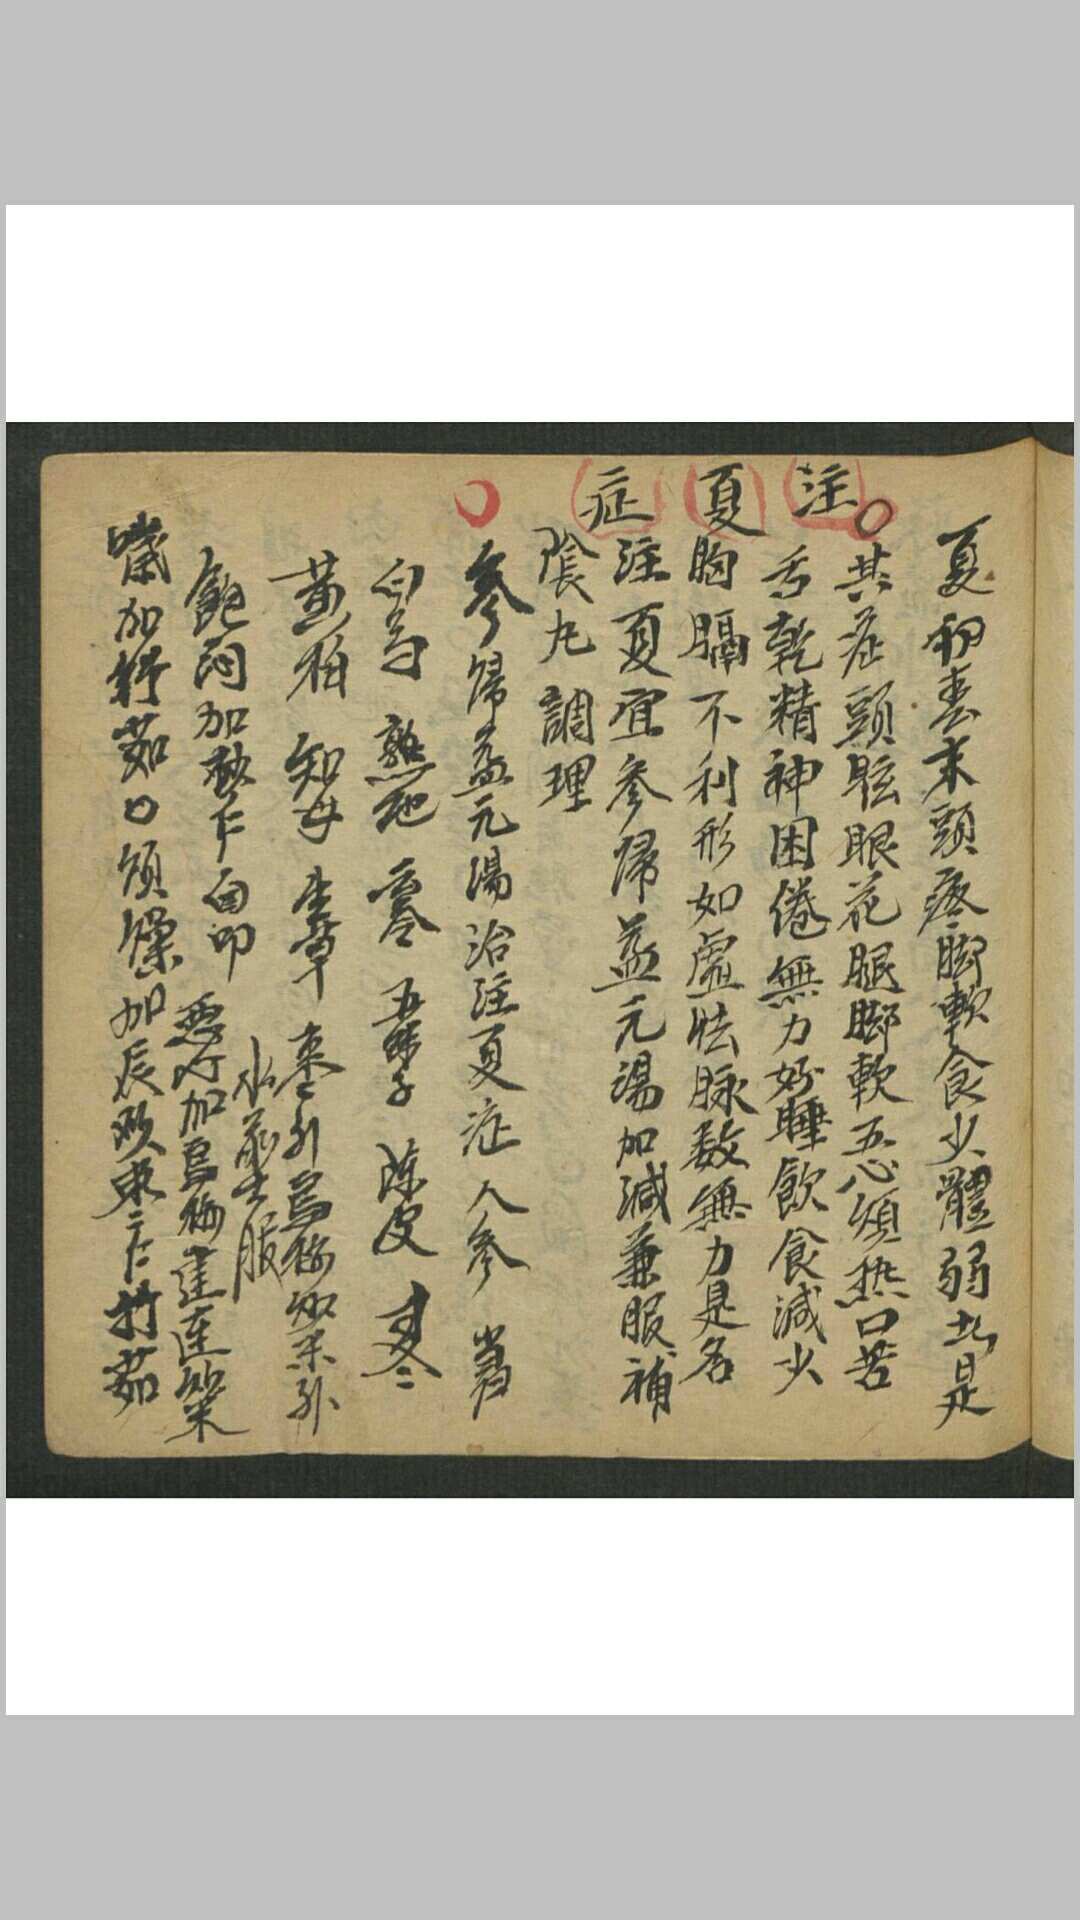 注夏症
夏初春末頭疼脚軟食少體弱此是
其症頭眩眼花腿脚軟五心煩热口苦
舌乾精神困倦無力好睡飲食減少
胸膈不利形如虛怯脉数無力是名
注夏宜參歸益元湯加減兼服補
陰丸調理
參歸益元湯治注夏症人參 當
白芍 熟地 苓 五味子 陳皮 麦冬
黄柏 知母 生草 枣引烏梅炒米引
水煎服
飽悶加砂仁白叩 恶心加烏梅蓮炒米
嗽加 口煩燥加辰砂枣仁竹茹